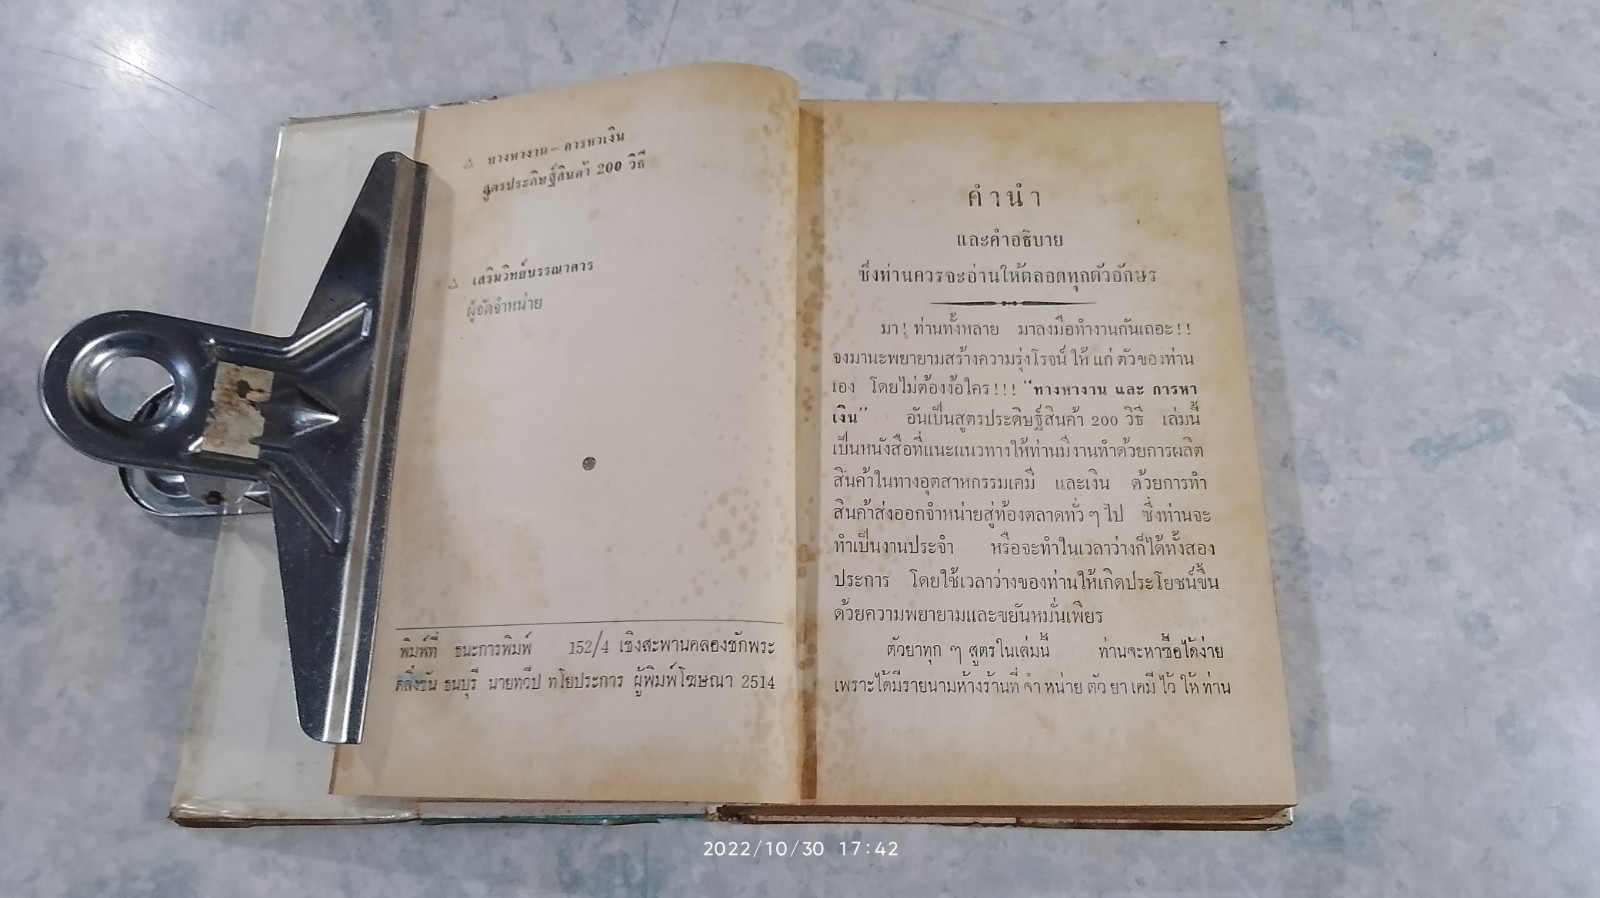 ทางหางาน – การหาเงิน
สูตรประดิษฐ์สินค้า 200 วิธี
เสริมวิทย์บรรณาคาร
ผู้จัดจำหน่าย
พิมพ์ที่ ธนะการพิมพ์ 152/4 เชิงสะพานคลองชักพระ
ตลิ่งชัน ธนบุรี นายทวีป ทโยประการ ผู้พิมพ์โฆษณา 2514
คำนำ
และคำอธิบาย
ซึ่งท่านควรจะอ่านให้ตลอดทุกตัวอักษร
มา! ท่านทั้งหลาย มาลงมือทำงานกันเถอะ!!
จงมานะพยายามสร้างความรุ่งโรจน์ ให้ แก่ ตัวของท่าน
เอง โดยไม่ต้องง้อใคร!!! "ทางหางาน และ การหา
เงิน" อันเป็นสูตรประดิษฐ์สินค้า 200 วิธี เล่มนี้
เป็นหนังสือที่แนะแนวทางให้ท่านมีงานทำด้วยการผลิต
สินค้าในทางอุตสาหกรรมเคมี และเงิน ด้วยการทำ
สินค้าส่งออกจำหน่ายสู่ท้องตลาดทั่ว ๆ ไป ซึ่งท่านจะ
ทำเป็นงานประจำ หรือจะทำในเวลาว่างก็ได้ทั้งสอง
ประการ โดยใช้เวลาว่างของท่านให้เกิดประโยชน์ขึ้น
ด้วยความพยายามและขยันหมั่นเพียร
ตัวยาทุก ๆ สูตรในเล่มนี้ ท่านจะหาซื้อได้ง่าย
เพราะได้มีรายนามห้างร้านที่ จำ หน่าย ตัว ยา เคมี ไว้ ให้ ท่าน
2022/10/30 17:42